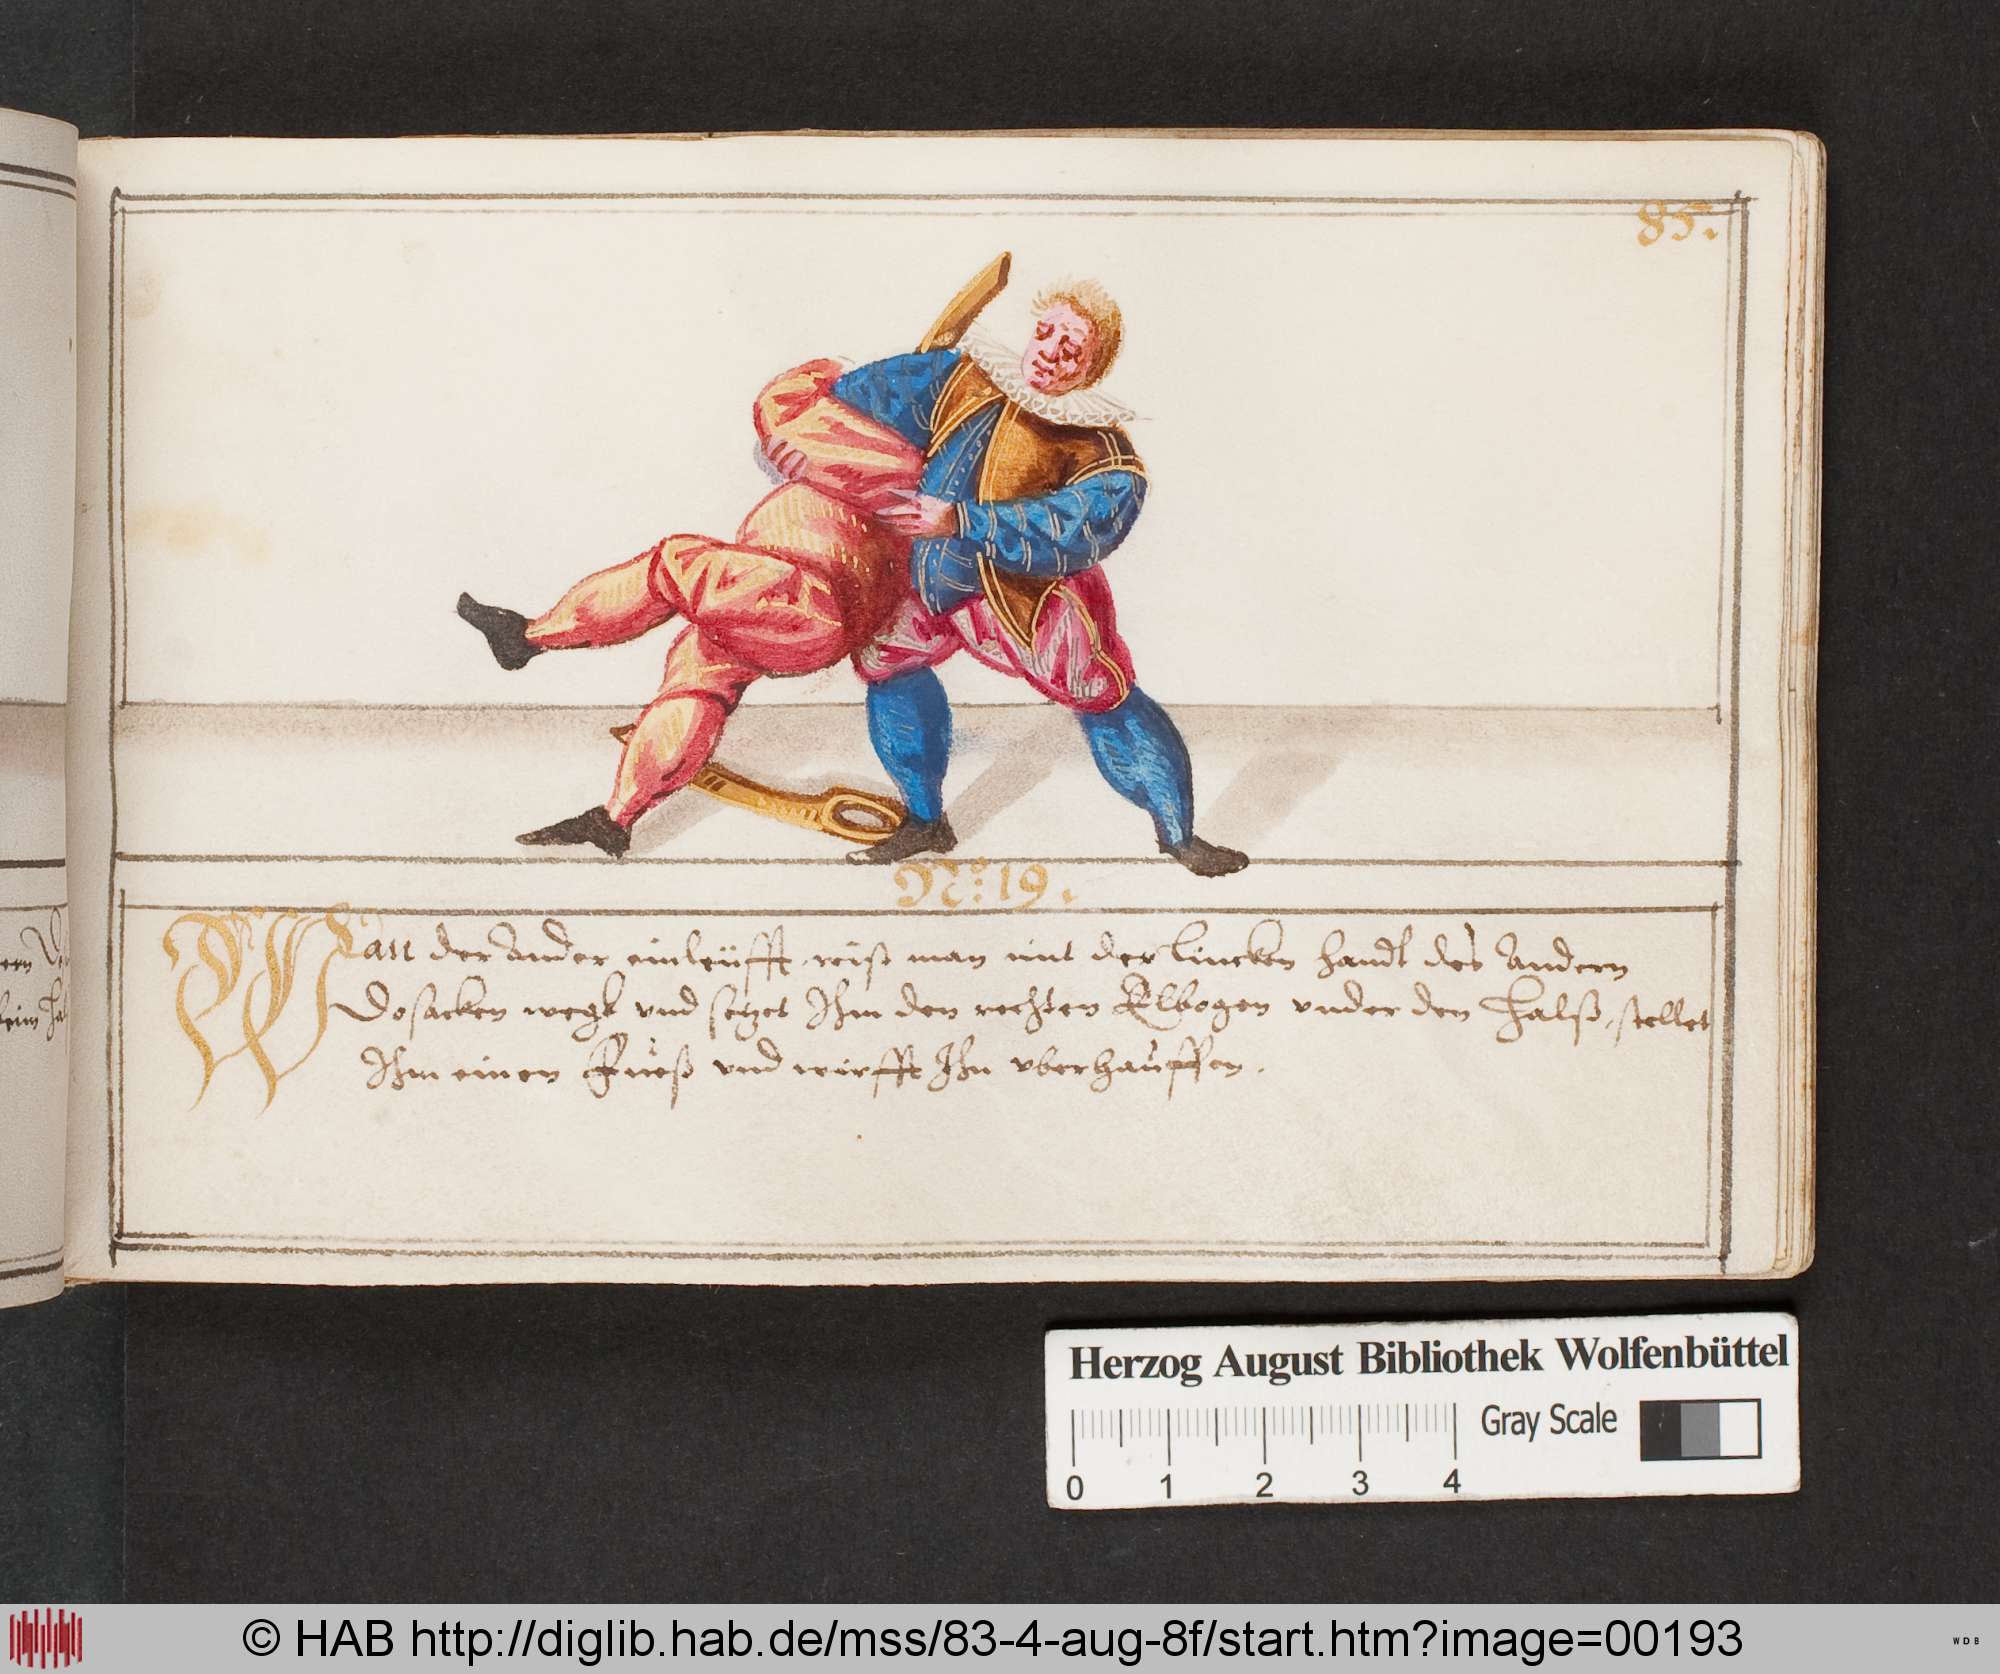 85.
No: 19.
Wan der Ander einleüfft, reiß man mit der lincken handt des Andern
Dosacken wegk vnd setzet Ihm den rechten Elbogen vnder den Halß, stellet
Ihm einen Fueß vnd wirfft Ihn vberhauffen.
Herzog August Bibliothek Wolfenbüttel
Gray Scale
0 1 2 3 4
© HAB http://diglib.hab.de/mss/83-4-aug-8f/start.htm?image=00193
WDB